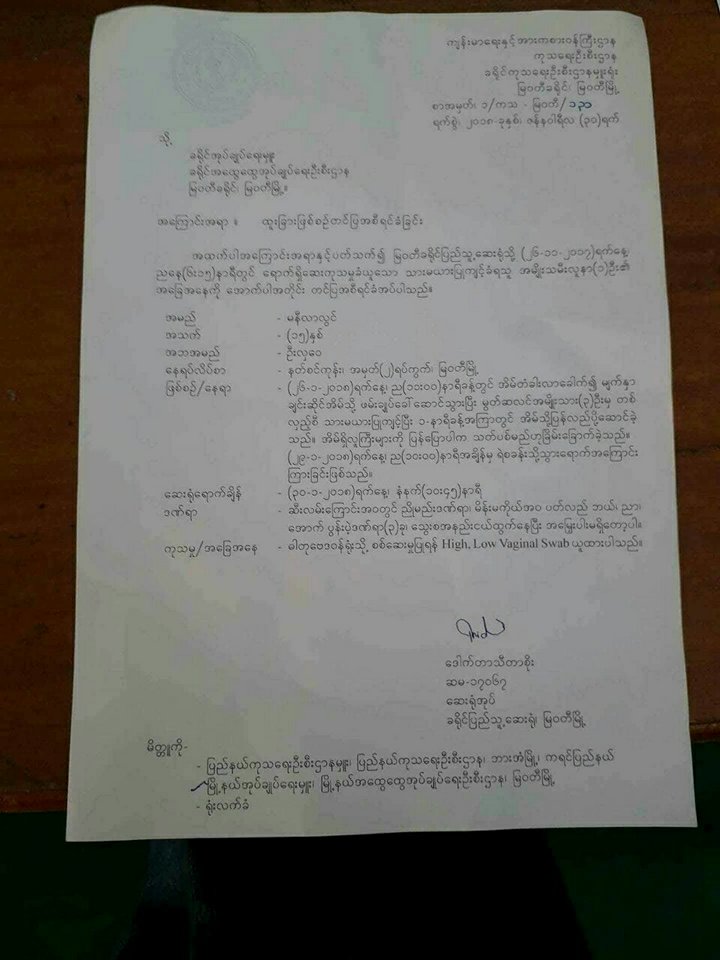 ကျန်းမာရေးနှင့်အားကစားဝန်ကြီးဌာန
ကုသရေးဦးစီးဌာန
ခရိုင်ကုသရေးဦးစီးဌာနမှူးရုံး
မြဝတီခရိုင်၊ မြဝတီမြို့
စာအမှတ်၊ ၁/ကသ - မြဝတီ/ ၁၃၁
ရက်စွဲ၊ ၂၀၁၈-ခုနှစ်၊ ဇန်နဝါရီလ (၃၀)ရက်
သို့
ခရိုင်အုပ်ချုပ်ရေးမှူး
ခရိုင်အထွေထွေအုပ်ချုပ်ရေးဦးစီးဌာန
မြဝတီခရိုင်၊ မြဝတီမြို့။
အကြောင်းအရာ ။ ထူးခြားဖြစ်စဉ်တင်ပြအစီရင်ခံခြင်း
အထက်ပါအကြောင်းအရာနှင့်ပတ်သက်၍ မြဝတီခရိုင်ပြည်သူ့ဆေးရုံသို့ (၂၆-၁၁-၂၀၁၇)ရက်နေ့
ညနေ(၆း၁၅)နာရီတွင် ရောက်ရှိဆေးကုသမှုခံယူသော သားမယားပြုကျင့်ခံရသူ အမျိုးသမီးလူနာ(၁)ဦး၏
အခြေအနေကို အောက်ပါအတိုင်း တင်ပြအစီရင်ခံအပ်ပါသည်။
အမည် -
အသက် - (၁၅)နှစ်
အဘအမည် -
နေရပ်လိပ်စာ -
ဖြစ်စဉ်/နေရာ - (၂၆-၁-၂၀၁၈)ရက်နေ့၊ ည(၁၁း၀၀)နာရီခန့်တွင် အိမ်တံခါးလာခေါက်၍ မျက်နှာ
ချင်းဆိုင်အိမ်သို့ ဖမ်းချုပ်ခေါ်ဆောင်သွားပြီး မွတ်ဆလင်အမျိုးသား(၃)ဦးမှ တစ်
လှည့်စီ သားမယားပြုကျင့်ပြီး ၁-နာရီခန့်အကြာတွင် အိမ်သို့ပြန်လည်ပို့ဆောင်ခဲ့
သည်။ အိမ်ရှိလူကြီးများကို ပြန်ပြောပါက သတ်ပစ်မည်ဟုခြိမ်းခြောက်ခဲ့သည်။
(၂၉-၁-၂၀၁၈)ရက်နေ့၊ ည(၁၀း၀၀)နာရီအချိန်မှ ရဲစခန်းသို့သွားရောက်အကြောင်း
ကြားခြင်းဖြစ်သည်။
ဆေးရုံရောက်ချိန် - (၃၀-၁-၂၀၁၈)ရက်နေ့၊ နံနက်(၁၀း၄၅)နာရီ
ဒဏ်ရာ - ဆီးလမ်းကြောင်းအဝတွင် ညိုမည်းဒဏ်ရာ၊ မိန်းမကိုယ်အဝ ပတ်လည် ဘယ်၊ ညာ၊
အောက် ပွန်းပဲ့ဒဏ်ရာ(၃)ခု၊ သွေးစအနည်းငယ်ထွက်နေပြီး အမြှေးပါးမရှိတော့ပါ။
ကုသမှု/အခြေအနေ - ဓါတုဗေဒဝန်ရုံးသို့ စစ်ဆေးမှုပြုရန် High, Low Vaginal Swab ယူထားပါသည်။
ဒေါက်တာသီတာစိုး
ဆမ-၁၇၀၆၇
ဆေးရုံအုပ်
ခရိုင်ပြည်သူ့ဆေးရုံ၊ မြဝတီမြို့
မိတ္တူကို-
- ပြည်နယ်ကုသရေးဦးစီးဌာနမှူး၊ ပြည်နယ်ကုသရေးဦးစီးဌာန၊ ဘားအံမြို့၊ ကရင်ပြည်နယ်
မြို့နယ်အုပ်ချုပ်ရေးမှူး၊ မြို့နယ်အထွေထွေအုပ်ချုပ်ရေးဦးစီးဌာန၊ မြဝတီမြို့
- ရုံးလက်ခံ